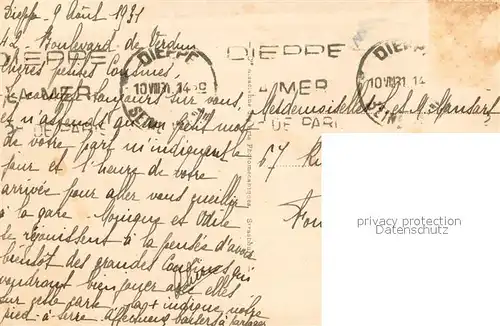 Dieppe 9 Août 1931
42 Boulevard de Verdun
Chères petites Cousines,
Je compte toujours sur vous,
et n'attends qu'un petit mot
de votre part m'indiquant le
jour et l'heure de votre
arrivée pour aller vous cueillir
à la gare. Monique et Odile
se réjouissent à la pensée d'avoir
bientôt des grandes Cousines qui
voudront bien jouer avec elles
sur cette carte indique notre
pied-à-terre. Affectueux baisers à partager
DIEPPE
SA MER
DE PARIS
DIEPPE
10 VIII 31 14
SEINE
DIEPPE
SA MER
DE PARI
DIEPP
10 VIII 31 14
SEIN
Mesdemoiselles et M. Mansart
67 Ru
Fon
privacy protection
for our offers